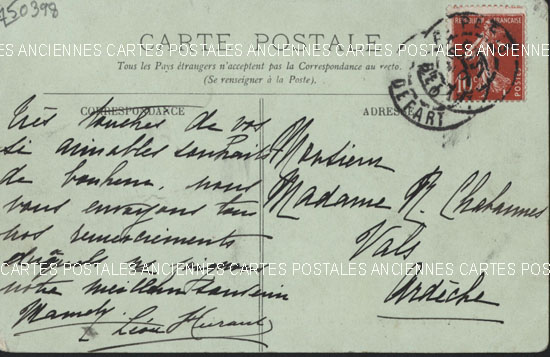 750398
CARTE POSTALE
Tous les Pays étrangers n'acceptent pas la Correspondance au recto.
(Se renseigner à la Poste).
CORRESPONDANCE
ADRESSE
REPUBLIQUE FRANÇAISE
10
POSTES
DEPART
CARTES POSTALES ANCIENNES CARTES POSTALES ANCIENNES CARTES POSTALES
Très touchés de vos
si aimables souhaits
de bonheur, nous
vous envoyons tous
nos remerciements
notre meilleur souvenir
Mamely
Léon
Monsieur
Madame R. Chabannes
Vals
Ardèche
CARTES POSTALES ANCIENNES CARTES POSTALES ANCIENNES CARTES POSTALES